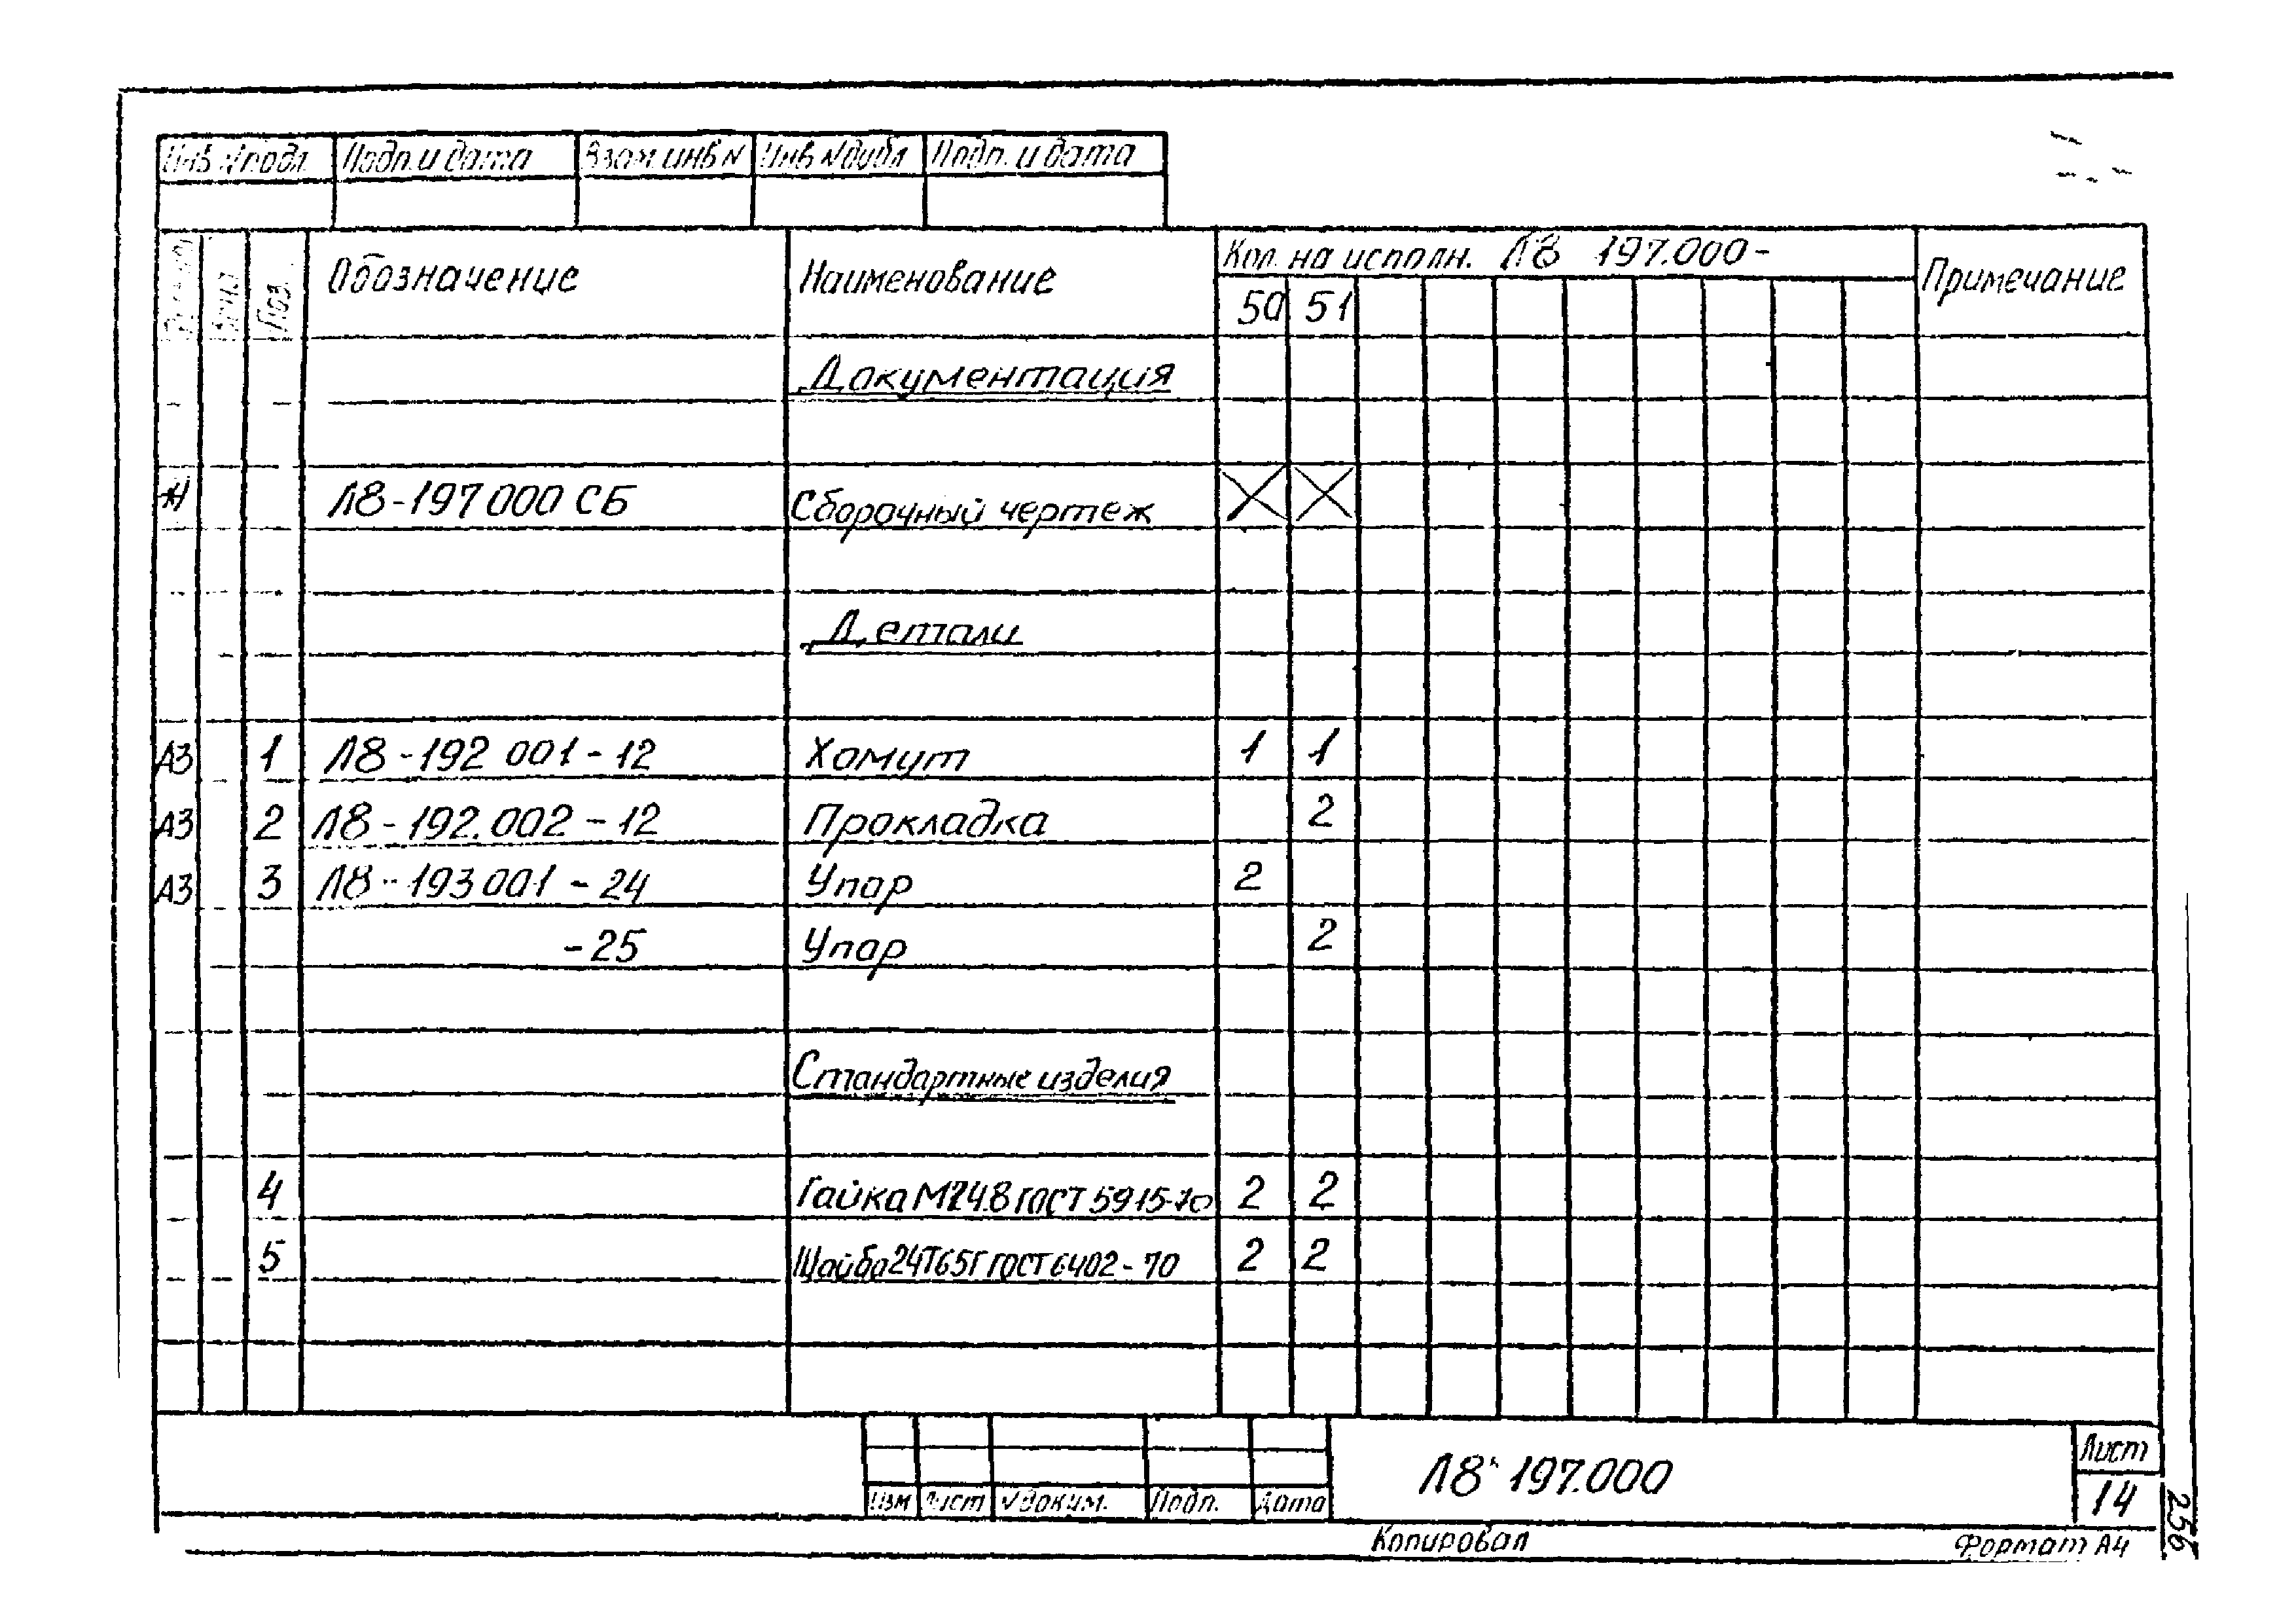 Инв №подл. Подп. и дата Взам инв N Инв №дубл Подп. и дата
Поз. Обозначение Наименование Кол. на исполн. Л8 197.000- Примечание
50 51
Документация
Л8-197000 СБ Сборочный чертеж
Детали
А3 1 Л8-192 001-12 Хомут 1 1
А3 2 Л8-192.002-12 Прокладка 2
А3 3 Л8-193001-24 Упор 2
-25 Упор 2
Стандартные изделия
4 Гайка М24.8 ГОСТ 5915-70 2 2
5 Шайба 24Т65Г ГОСТ 6402-70 2 2
Л8-197.000 Лист
Изм Лист №докум. Подп. Дата 14
Копировал Формат А4
256